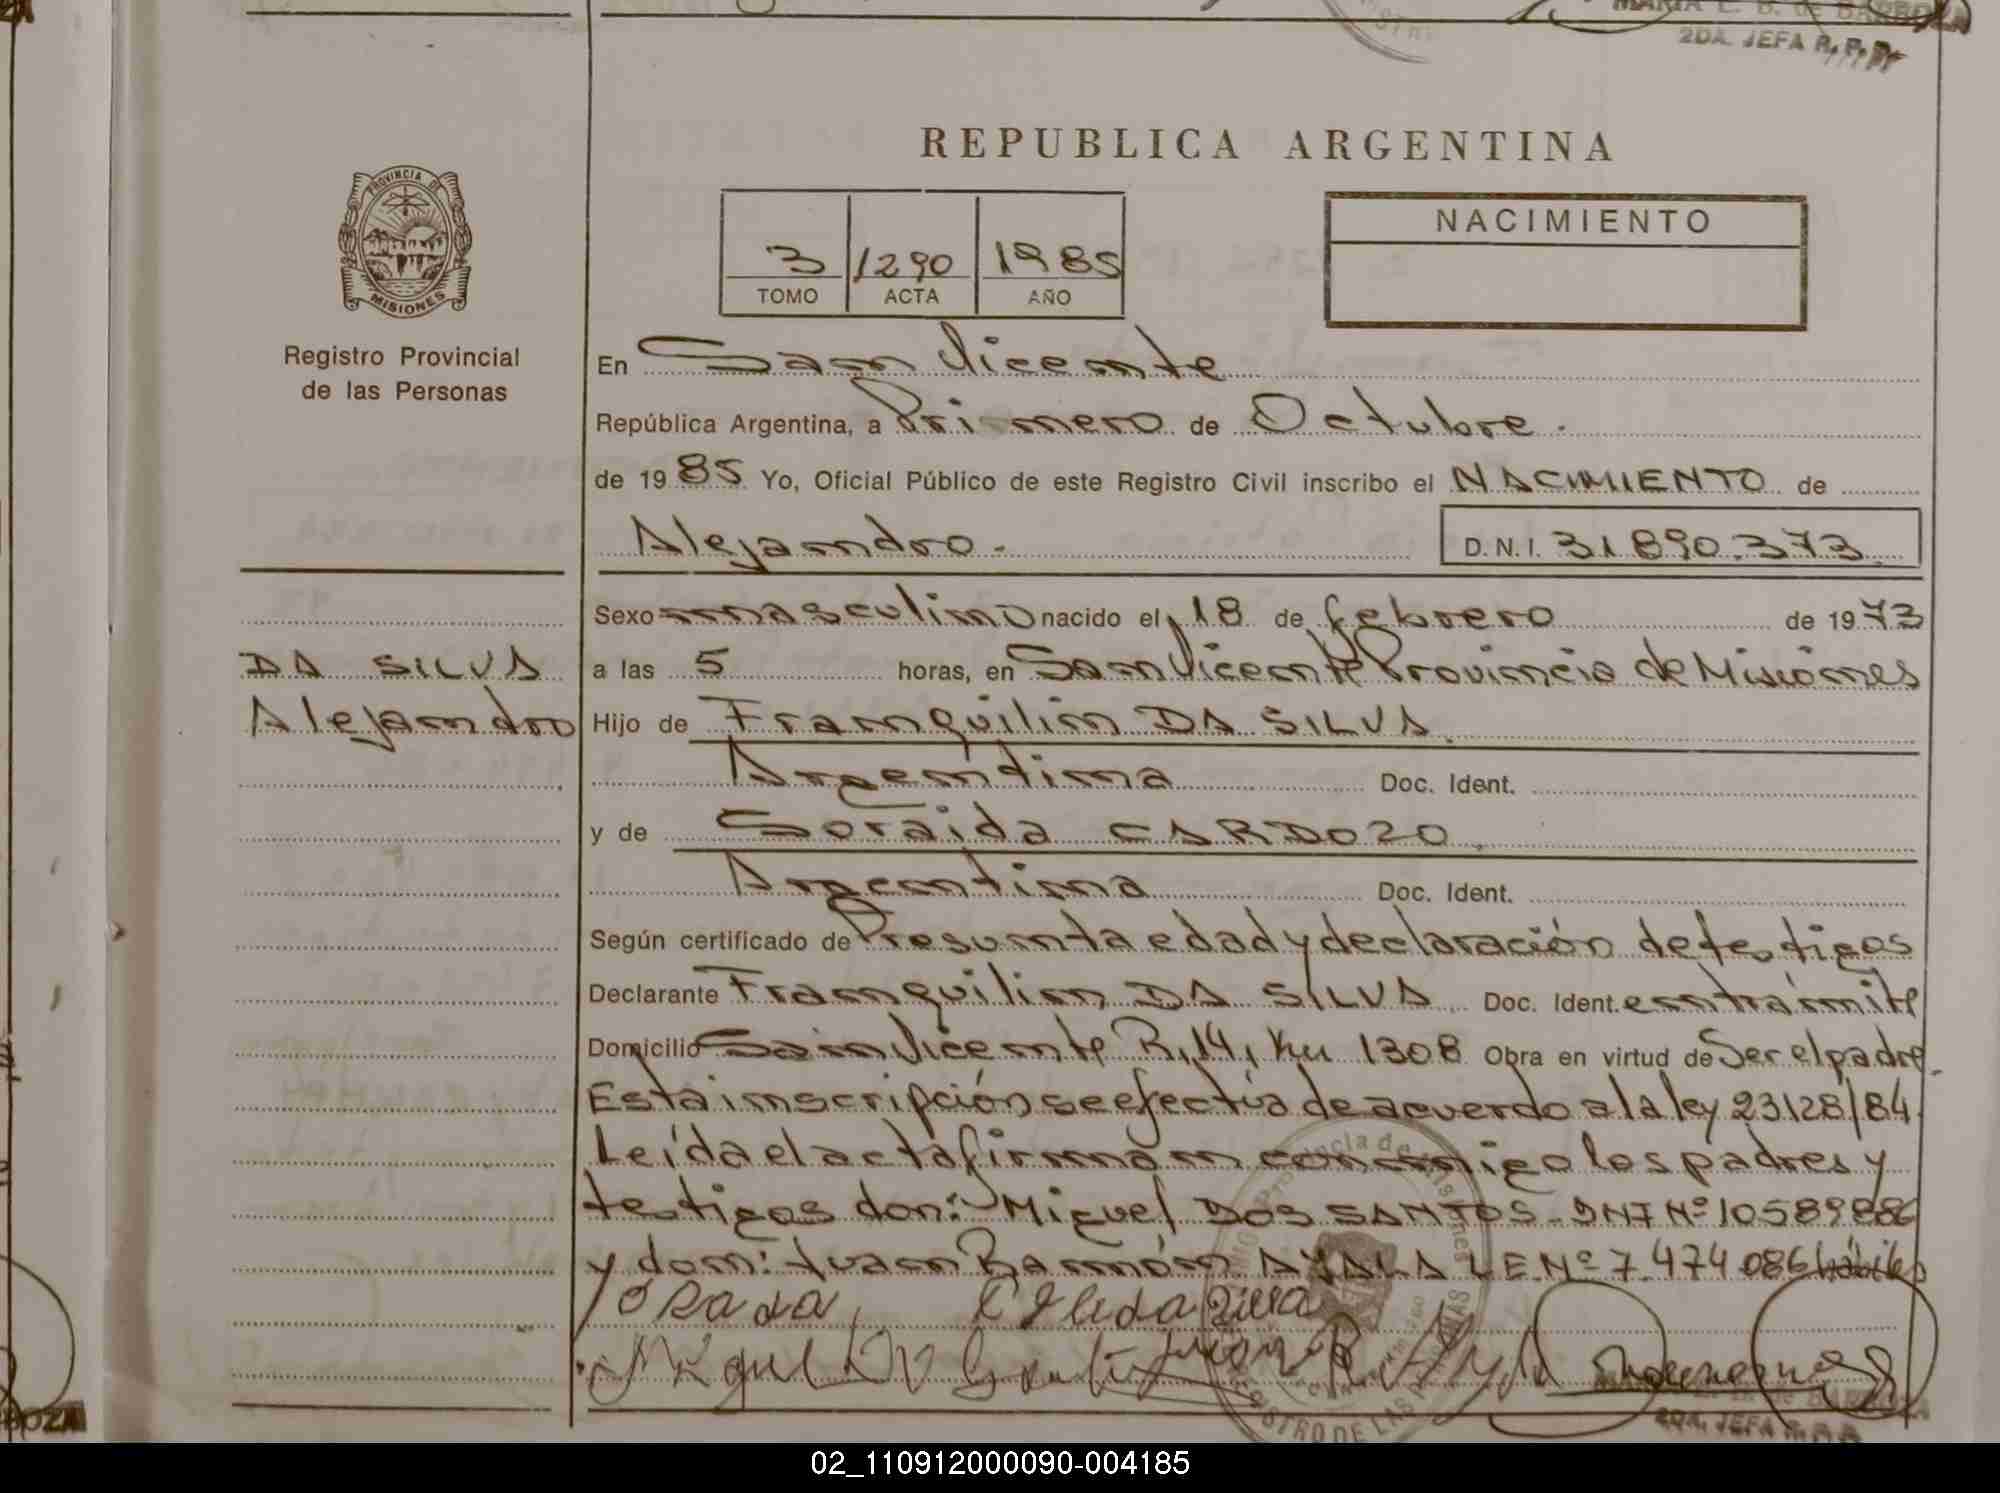 MARIA E. B. de BARBOZA
2DA. JEFA R. P. P.
REPUBLICA ARGENTINA
PROVINCIA DE
MISIONES
Registro Provincial
de las Personas
3 1290 1985
TOMO ACTA AÑO
NACIMIENTO
En San Vicente
República Argentina, a Primero de Octubre.
de 19 85 Yo, Oficial Público de este Registro Civil inscribo el NACIMIENTO de
Alejandro.- D.N.I. 31.890.373
DA SILVA
Alejandro
Sexo masculino nacido el 18 de febrero de 19 73
a las 5 horas, en San Vicente Provincia de Misiones
Hijo de Franquilin DA SILVA
Argentina Doc. Ident.
y de Soraida CARDOZO
Argentina Doc. Ident.
Según certificado de Presunta edad y declaración de testigos
Declarante Franquilin DA SILVA Doc. Ident. en trámite
Domicilio San Vicente R. 14, Km 1308 Obra en virtud de Ser el padre.
Esta inscripción se efectúa de acuerdo a la ley 23128/84
Leída el acta firman conmigo los padres y
testigos don: Miguel DOS SANTOS - DNI Nº 10589886
y don: Juan Ramón AYALA L E. Nº 7.474.086 hábiles
Miguel
Juan R. Ayala
2DA. JEFA R. P. P.
BOZA
02_110912000090-004185